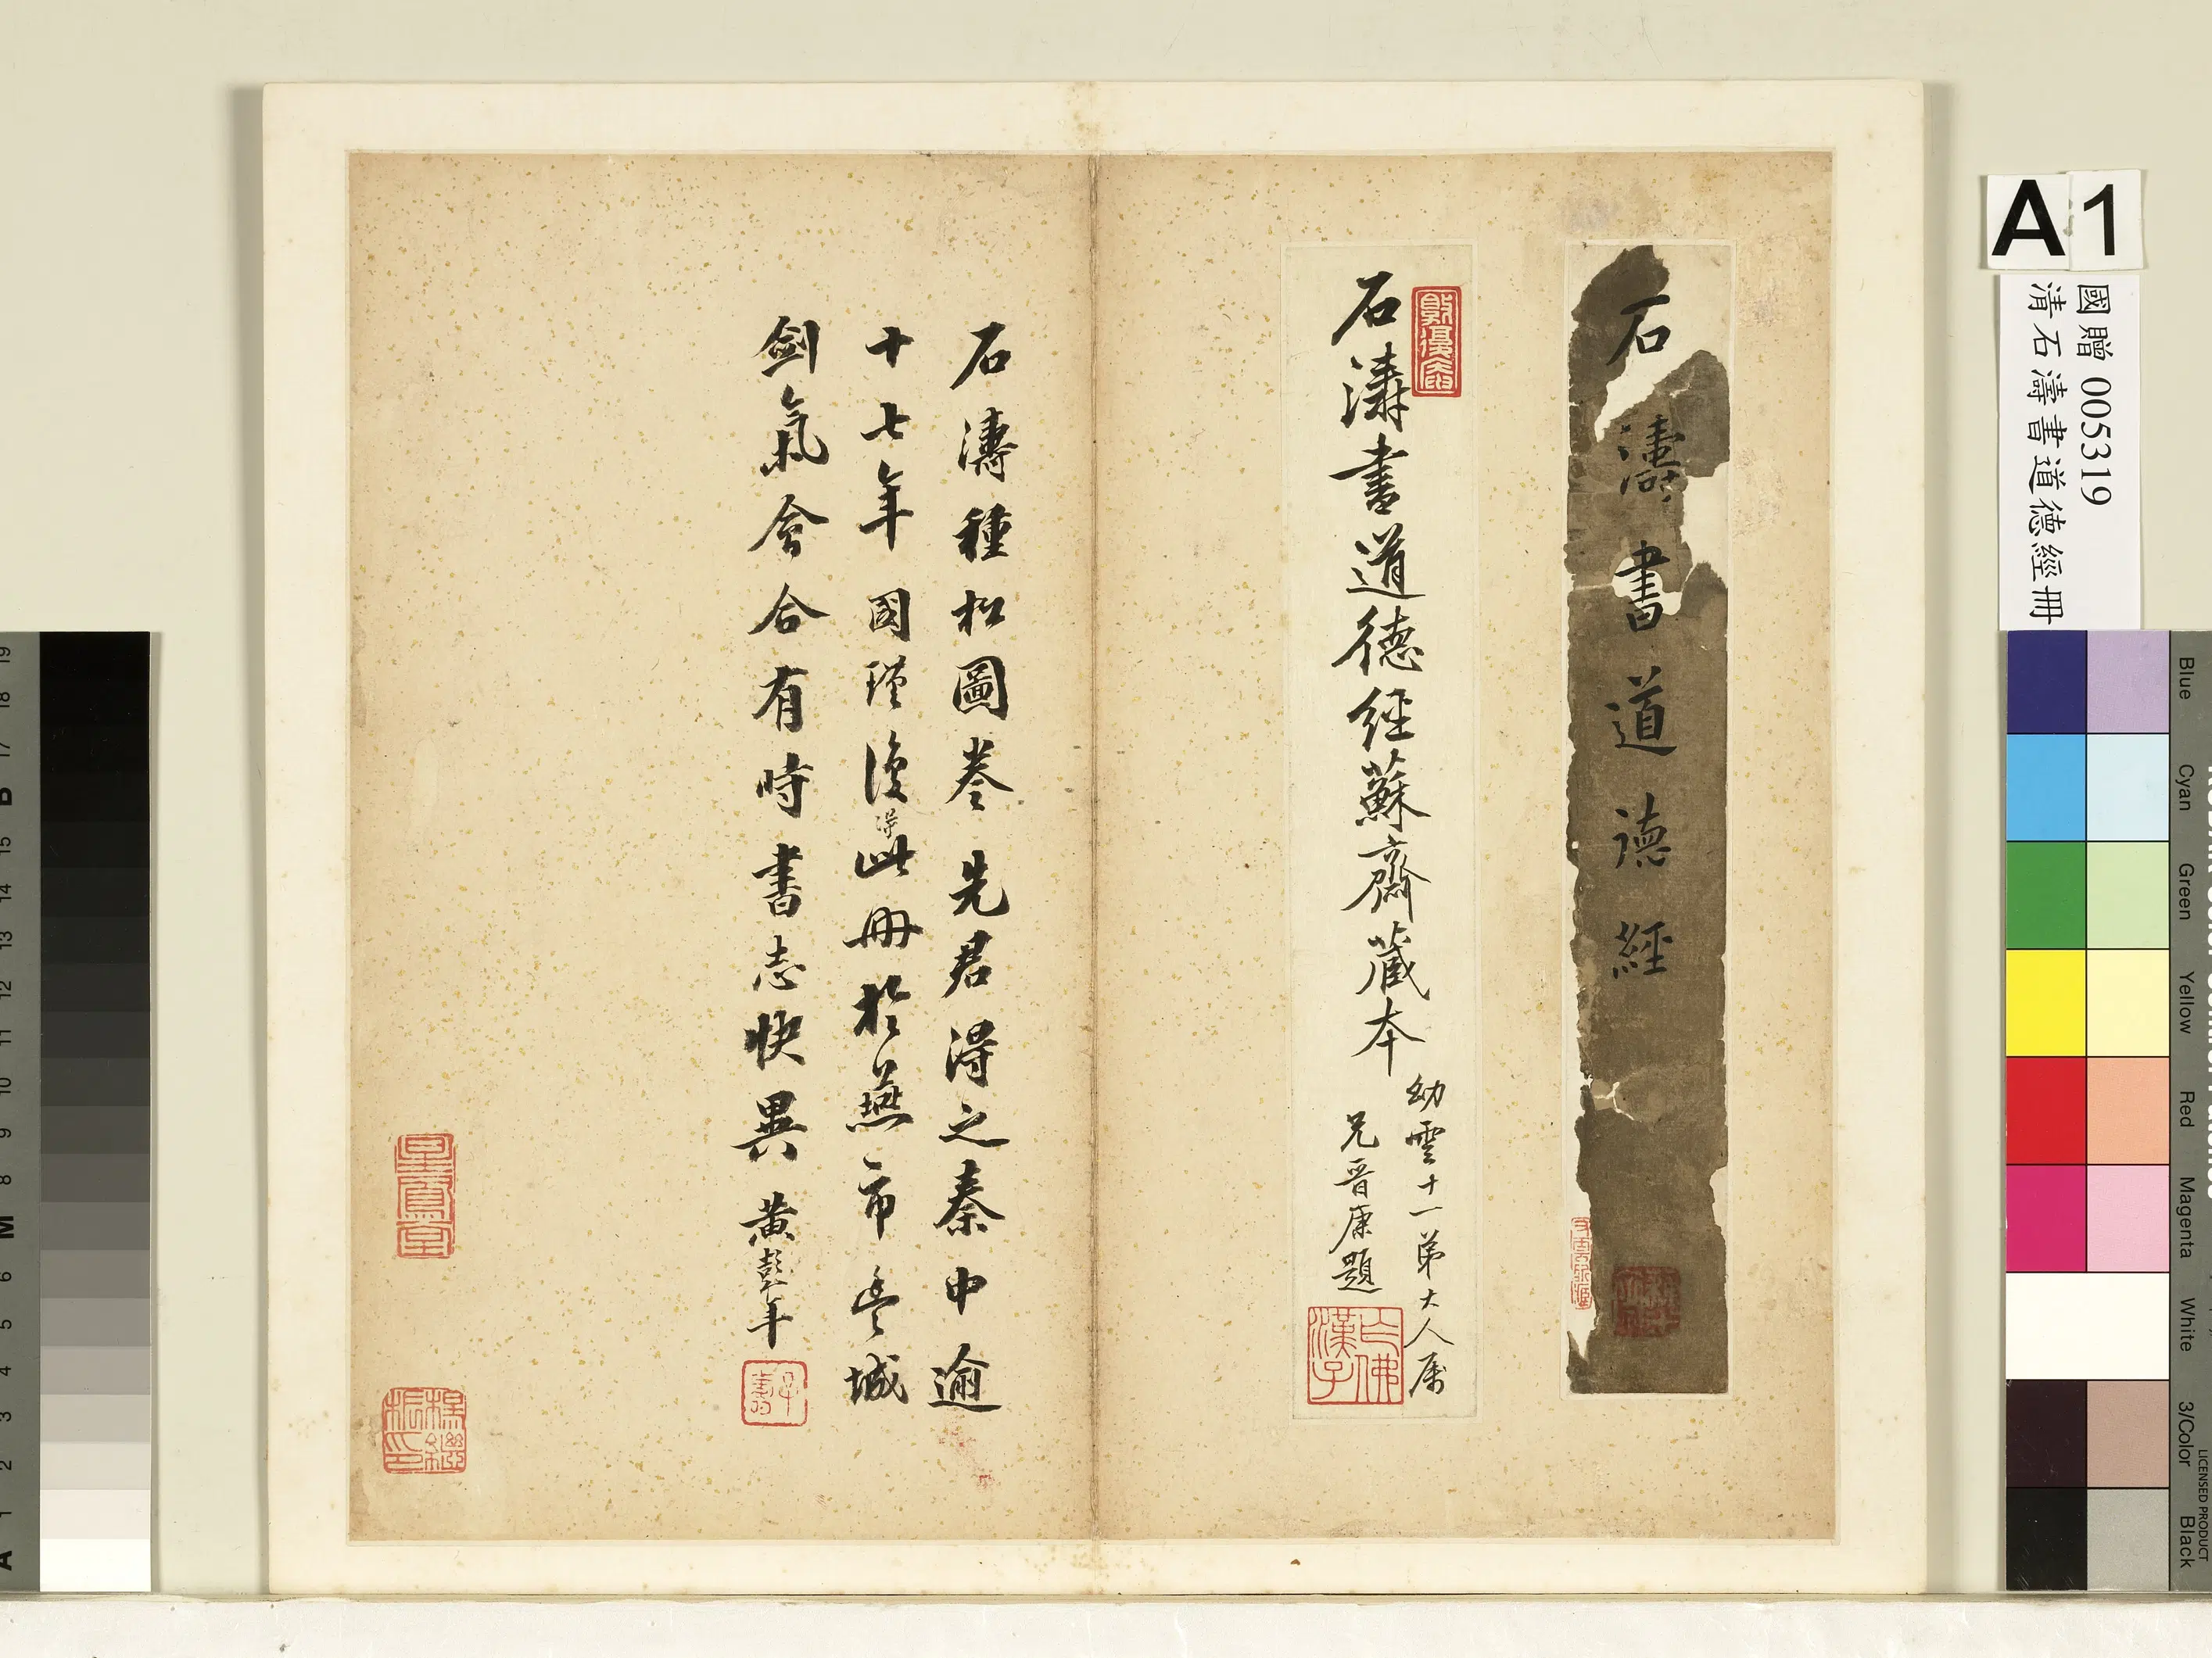 石濤書道德經
石濤書道德經蘇齋藏本
幼雲十一弟大人屬
兄晉康題
石濤種松圖卷先君得之秦中逾
十七年國瑾復得此冊於燕市豐城
劍氣會合有時書志快異 黃彭年
子壽
A1
國贈 005319
清石濤書道德經冊
Blue
Cyan
Green
Yellow
Red
Magenta
White
3/Color
Black
LICENSED PRODUCT
19
18
17
B
15
14
13
12
11
10
9
8
M
6
5
4
3
2
1
A